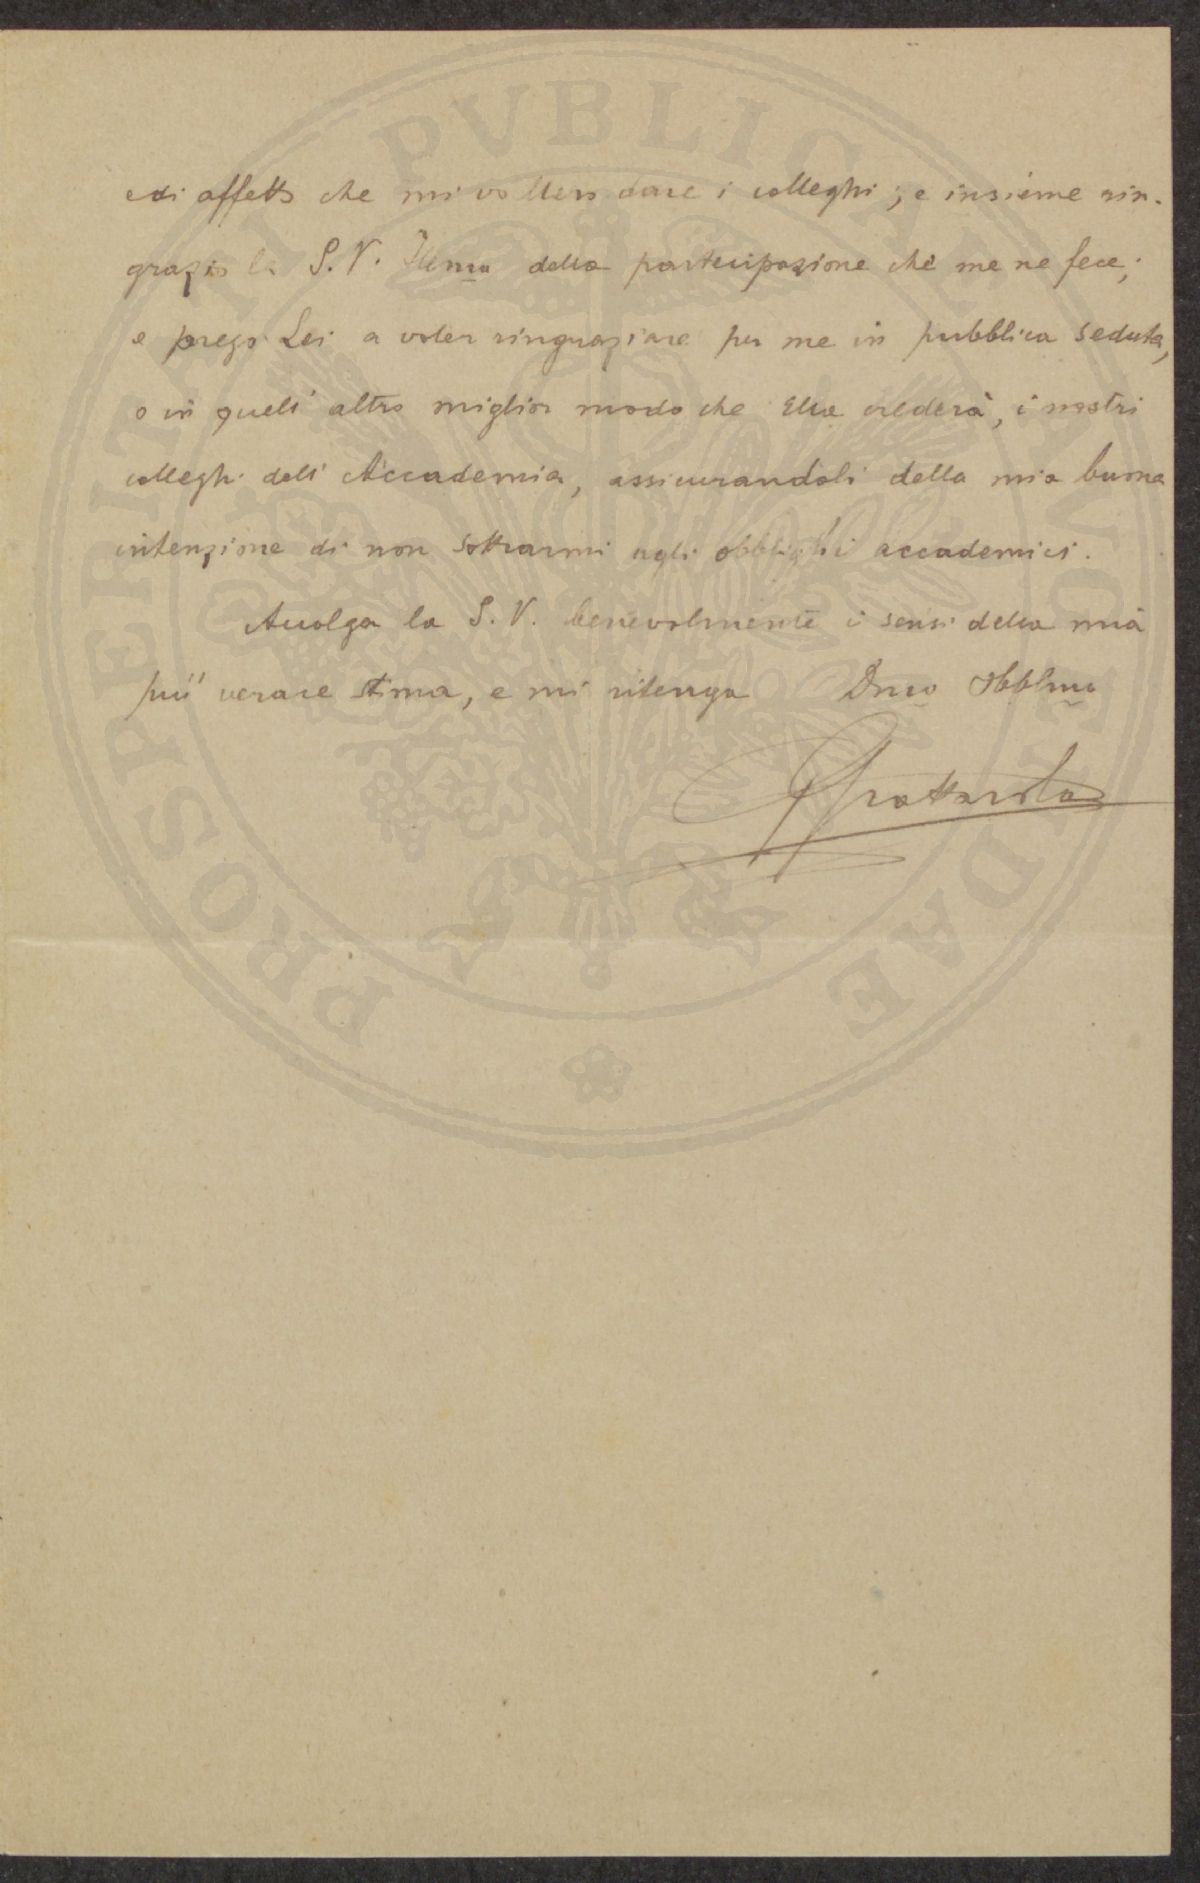 e di affetto che mi vollero dare i colleghi; e insieme rin-
grazio la S. V. Illma della partecipazione che me ne fece;
e prego Lei a voler ringraziare per me in pubblica seduta,
o in quell' altro miglior modo che Ella crederà, i nostri
colleghi dell' Accademia, assicurandoli della mia buona
intenzione di non sottrarmi agli obblighi accademici.
Accolga la S. V. benevolmente i sensi della mia
più verace stima, e mi ritenga Dmo Obblmo
Grattarola
PROSPERITATI PUBLICAE AUGENDAE